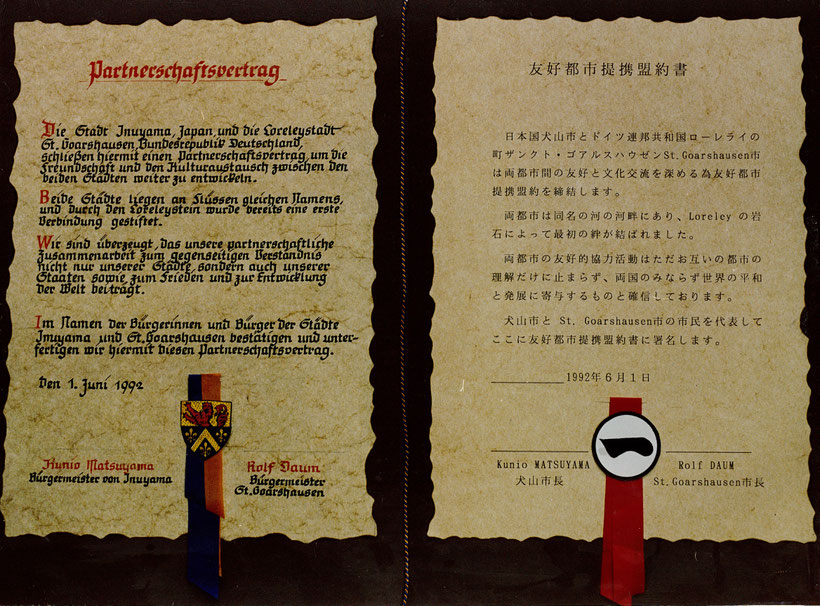 Partnerschaftsvertrag
Die Stadt Inuyama, Japan, und die Loreleystadt
St. Goarshausen, Bundesrepublik Deutschland,
schließen hiermit einen Partnerschaftsvertrag, um die
Freundschaft und den Kulturaustausch zwischen den
beiden Städten weiter zu entwickeln.
Beide Städte liegen an Flüssen gleichen Namens,
und durch den Loreleystein wurde bereits eine erste
Verbindung gestiftet.
Wir sind überzeugt, das unsere partnerschaftliche
Zusammenarbeit zum gegenseitigen Verständnis
nicht nur unserer Städte, sondern auch unserer
Staaten sowie zum Frieden und zur Entwicklung
der Welt beiträgt.
Im Namen der Bürgerinnen und Bürger der Städte
Inuyama und St. Goarshausen bestätigen und unter-
fertigen wir hiermit diesen Partnerschaftsvertrag.
den 1. Juni 1992
Kunio Matsuyama
Bürgermeister von Inuyama
Rolf Daum
Bürgermeister
St. Goarshausen
友好都市提携盟約書
日本国犬山市とドイツ連邦共和国ローレライの
町ザンクト・ゴアルスハウゼンSt.Goarshausen市
は両都市間の友好と文化交流を深める為友好都市
提携盟約を締結します。
両都市は同名の河の河畔にあり、Loreley の岩
石によって最初の絆が結ばれました。
両都市の友好的協力活動はただお互いの都市の
理解だけに止まらず、両国のみならず世界の平和
と発展に寄与するものと確信しております。
犬山市と St. Goarshausen市の市民を代表して
ここに友好都市提携盟約書に署名します。
1992年6月1日
Kunio MATSUYAMA
犬山市長
Rolf DAUM
St.Goarshausen市長